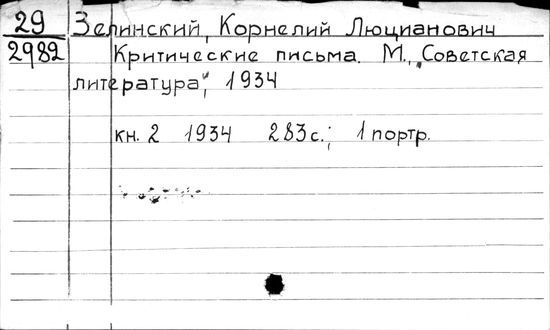 29 Зелинский, Корнелий Люцианович
2982 Критические письма. М., "Советская
литература", 1934
кн. 2 1934 283 с.; 1 портр.